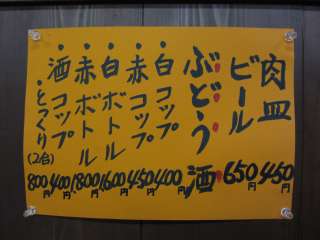 肉皿 450
ビール 650
ぶどう酒
・白コップ 400円
・赤コップ 450円
・白ボトル 1,600円
・赤ボトル 1,800円
・酒コップ 400円
・〃とっくり(2合) 800円